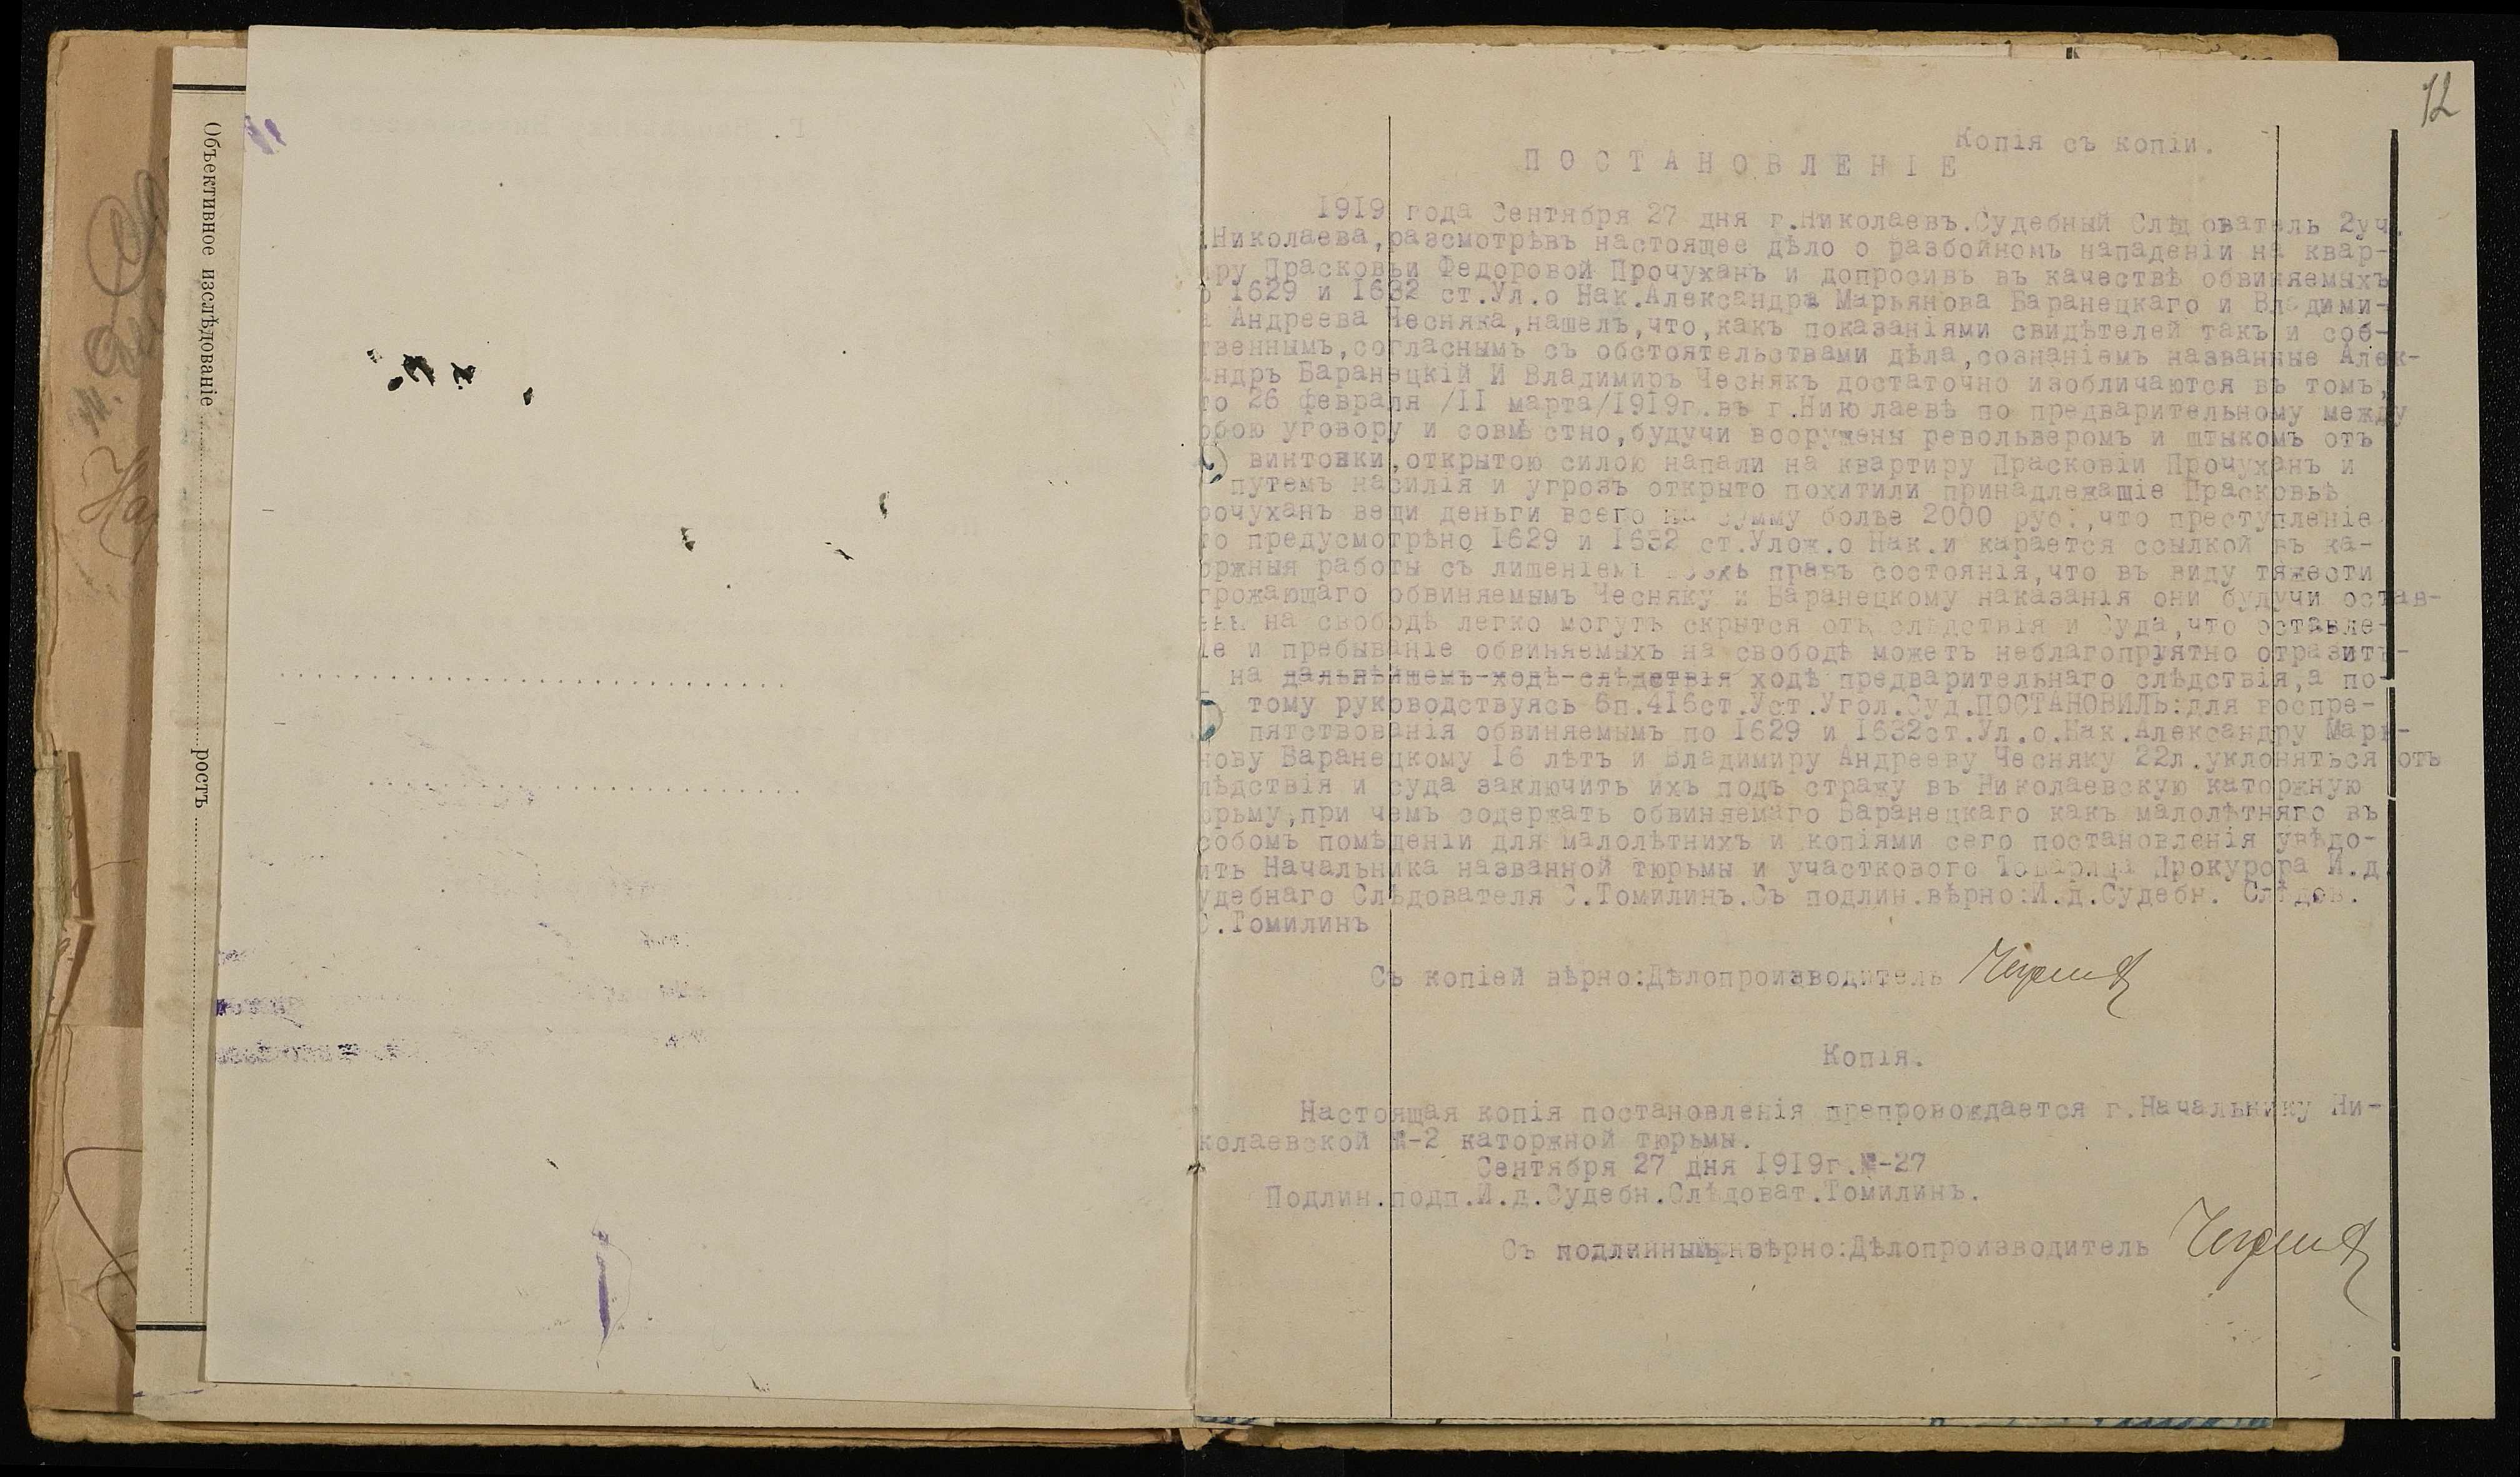 Объективное изслѣдованіе
ростъ
12
Копія съ копіи.
ПОСТАНОВЛЕНІЕ
1919 года Сентября 27 дня г.Николаевъ.Судебный Слѣдователь 2уч.
.Николаева,разсмотрѣвъ настоящее дѣло о разбойномъ нападеніи на квар-
иру Прасковьи Федоровой Прочуханъ и допросивъ въ качествѣ обвиняемыхъ
о 1629 и 1632 ст.Ул.о Нак.Александра Марьянова Баранецкаго и Владими-
а Андреева Чесняка,нашелъ,что,какъ показаніями свидѣтелей такъ и соб-
твеннымъ,согласнымъ съ обстоятельствами дѣла,сознаніемъ названные Алек-
андръ Баранецкій И Владимиръ Чеснякъ достаточно изобличаются въ томъ,
то 26 февраля /II марта/1919г.въ г.Нию лаевѣ по предварительному между
обою уговору и совмѣ стно,будучи вооружены револьверомъ и штыкомъ отъ
винтовки,открытою силою напали на квартиру Прасковіи Прочуханъ и
путемъ насилія и угрозъ открыто похитили принадлежащіе Прасковьѣ
рочуханъ вещи деньги всего на сумму болѣе 2000 руб.,что преступленіе
то предусмотрѣно 1629 и 1632 ст.Улож.о Нак.и карается ссылкой въ ка-
оржныя работы съ лишеніемъ всѣхъ правъ состоянія,что въ виду тяжести
грожающаго обвиняемымъ Чесняку и Баранецкому наказанія они будучи остав-
ены на свободѣ легко могутъ скрытся отъ слѣдствія и Суда,что оставле-
іе и пребываніе обвиняемыхъ на свободѣ можетъ неблагопріятно отразить-
на дальнѣйшемъ-ходѣ-слѣдствія ходѣ предварительнаго слѣдствія,а по-
тому руководствуясь 6п.416ст.Уст.Угол.Суд.ПОСТАНОВИЛЪ:для воспре-
пятствованія обвиняемымъ по 1629 и 1632ст.Ул.о.Нак.Александру Марь-
нову Баранецкому 16 лѣтъ и Владимиру Андрееву Чесняку 22л.уклоняться отъ
лѣдствія и суда заключить ихъ подъ стражу въ Николаевскую каторжную
юрьму,при чемъ содержать обвиняемаго Баранецкаго какъ малолѣтняго въ
собомъ помѣщеніи для малолѣтнихъ и копіями сего постановленія увѣдо-
ить Начальника названной тюрьмы и участкового Товарища Прокурора И.д
удебнаго Слѣдователя С.Томилинъ.Съ подлин.вѣрно:И.д.Судебн. Слѣдов.
С.Томилинъ
Съ копіей вѣрно:Дѣлопроизводитель
Копія.
Настоящая копія постановленія препровождается г.Начальнику Ни-
колаевской №-2 каторжной тюрьмы.
Сентября 27 дня 1919г.№-27
Подлин.подп.И.д.Судебн.Слѣдоват.Томилинъ.
Съ подлиннымъ вѣрно:Дѣлопроизводитель